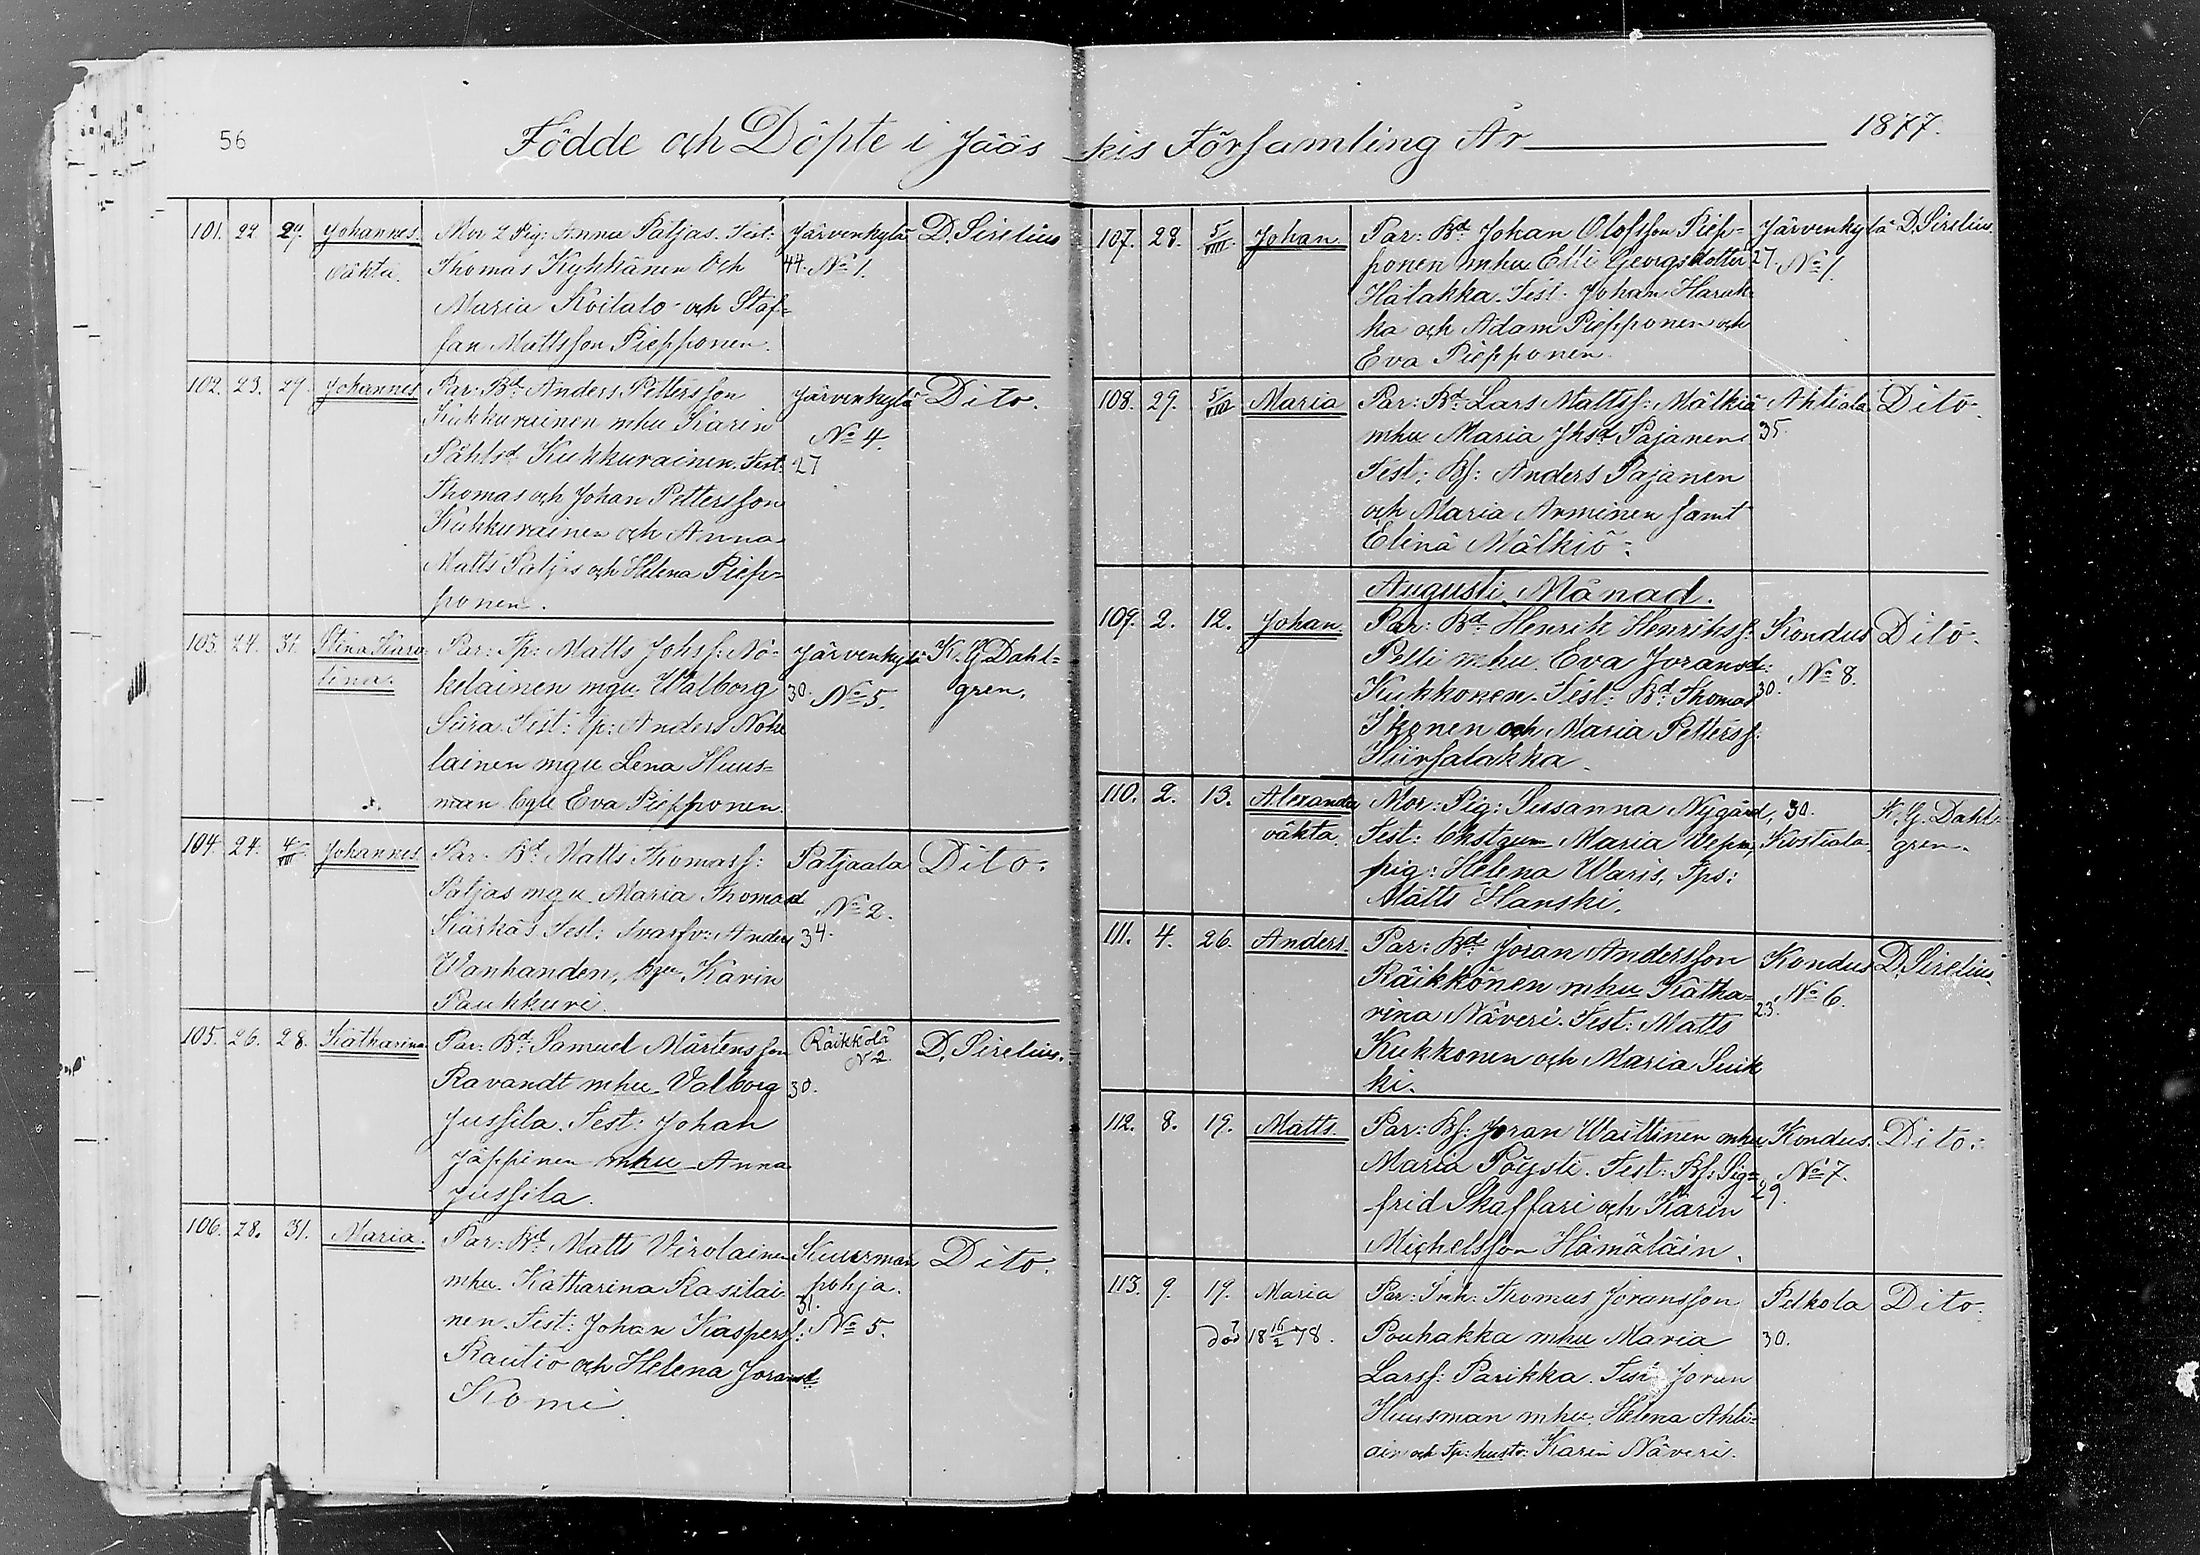 56
Födde och Döpte i Jääs kis Församling År 1877.
101. 22 29. Johannes. Mor L. Pig: Anna Patjas. Test: Järvenkylä D. Sirelius
oäkta. Thomas Kykkänen Och 44. No 1.
Maria Koitalo och Staf-
fan Mattsson Piepponen.
102. 23. 29. Johannes Par: Bd Anders Pettersson Järvenkylä Dito.
Kukkurainen mhu Karin No 4.
Påhlsd Kukkurainen. Test: 27
Thomas och Johan Pettersson
Kukkurainen och Anna
Matts Patjas och Helena Piep-
ponen.
103. 24. 31. Stina Karo- Par: Sp: Matts Johsf: No- Järvenkylä K. G Dahl-
lina. kelainen mgu. Walborg 30. No 5. gren.
Sura Test: Sp: Anders Noke
lainen mgu Lena Huus-
man Eva Piepponen.
104. 24. 4/VIII Johannes. Par: Bd Matts Thomasf: Patjaala Dito.
Patjas mgu. Maria Thomasd No 2.
Kärkäs Test: Svarfv: Anders 34.
Wanhanden, Karin
Pauhkuri.
105. 26. 28. Katharina Par: Bd Samuel Mårtensson Räikkölä D. Sirelius.
N 2.
Ravandt mhu Valborg 30.
Jussila. Test: Johan
Jäppinen mhu Anna
Jussila.
106. 28. 31. Maria. Par: Bd Matts Virolainen Kuurman Dito.
mhu. Katharina Kasilai- pohja.
31.
nen. Test: Johan Kaspersf: No 5.
Rautio och Helena Joransd
Komi.
107. 28. 5/VIII. Johan Par: Bd Johan Olofsson Piep- Järvenkylä D. Sirelius.
ponen mhu Elli Georgsdotter 27. No 1.
Halakka. Test: Johan Harak-
ka och Adam Piepponen och
Eva Piepponen.
108. 29. 5/VIII Maria Par: Bd Lars Mattsf: Mälkiä Ahtiala. Dito.
mhu Maria Jhsd Pajanen 35.
Test: Bf: Anders Pajanen
och Maria Arminen samt
Elinä Mälkiö.
Augusti Månad.
109. 2. 12. Johan Par: Bd Henrik Henriksf: Kondus Dito.
Pelli mhu. Eva Joransd: No 8.
Kukkonen. Test: Bd Thomas 30.
Ikonen och Maria Pettersf:
Hiirsalakka.
110. 2. 13. Alexander Mor: Pig: Susanna Nygård, 30. K. G. Dahl-
oäkta. Test: Maria Kostiala. gren.
pig: Helena Waris, Sps:
Matts Hanski.
111. 4. 26. Anders. Par: Bd Joran Andersson Kondus D. Sirelius.
Räikkönen mhu Katha- No 6.
rina Näveri. Test: Matts 23.
Kukkonen och Maria Suik
ki.
112. 8. 19. Matts. Par: Bf: Joran Waittinen mhu Kondus. Dito.
Maria Pöysti. Test: Bf: Sig- No 7.
frid Skaffari och Karin 29.
Michelsson Hämäläin.
113. 9. 19. Maria Par: Inh: Thomas Joransson Pelkola Dito.
död 18 16/2 78. Pouhakka mhu Maria 30.
Larsf: Parikka. Test: Joran
Huusman mhu. Helena Ahti-
ain och Sp: hustr: Karin Näveri.